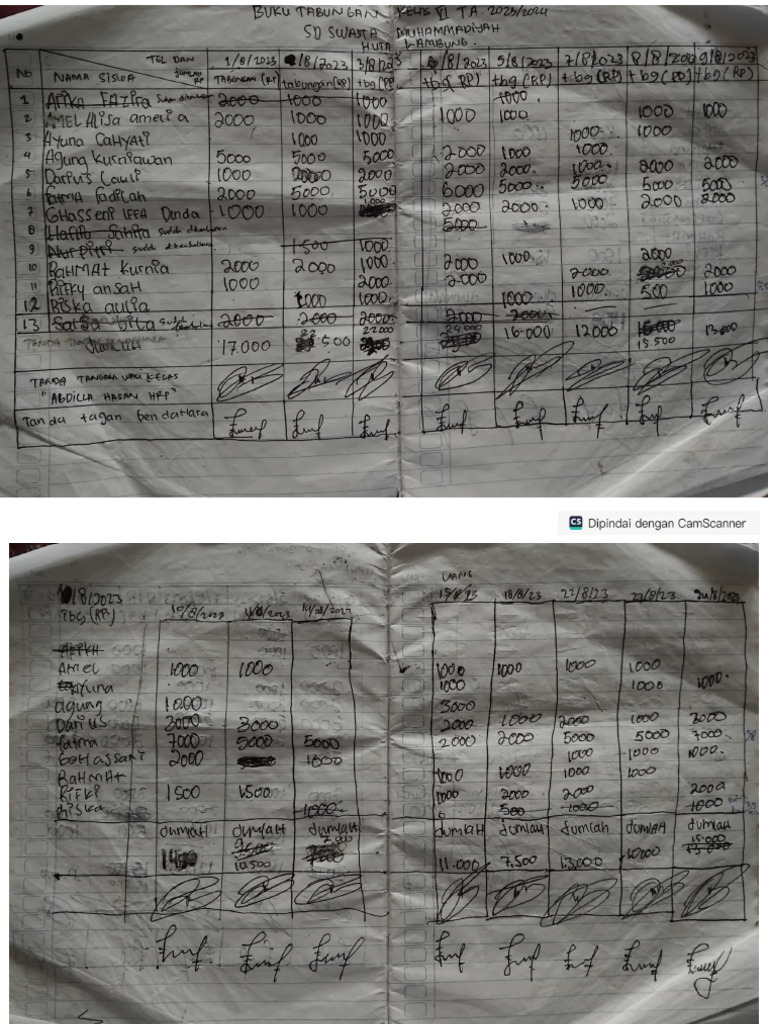 BUKU TABUNGAN KELAS VI T.A. 2023/2024
SD SWASTA MUHAMMADIYAH
HUTA LAMBUNG.
NO NAMA SISWA TGL DAN JUMLAH RP 1/8/2023 TABUNGAN (RP) /8/2023 tabungan (RP) 3/8/2023 tbg (RP) /8/2023 tbg (RP) 5/8/2023 tbg (RP) 7/8/2023 tbg (RP) 8/8/2023 tbg (RP) 9/8/2023 tbg (RP)
1 Arika Fazira 2000 1000 1000 1000
2 AMEL Alisa amelia 2000 1000 1000 1000 1000 1000 1000
3 Ayuna Cahyati 1000 1000 1000 1000
4 Agung Kurniawan 5000 5000 5000 2000 1000 1000
5 Darius Lawi 1000 2000 2000 2000 2000 1000 2000 2000
6 Fatma Fadilah 2000 5000 5000 6000 5000 5000 5000 5000
7 GHasseni IFFA Dinda 1000 1000 1000 2000 2000 1000 2000 2000
8 Hafita Sahira 5000
9 Nurfitri sudah dikembalikan 1500 1000
10 RAHMAT Kurnia 2000 2000 1000 2000 1000 2000
11 Rifky ansah 1000 2000 2000 2000 2000
12 Riska aulia 1000 1000 1000 1000 500 1000
13 Salsa bila 2000 2000 2000 2000 2000
Jumlah 17.000 22.500 22.000 24.000 16.000 12000 15.500 13.000
TANDA TANGAN WALI KELAS
"ABDILLA HASAN HRP"
Tanda tagan bendahara
CS Dipindai dengan CamScanner
10/8/2023
tbg (RP) 10/8/2023 /8/2023 14/08/2023
UANG
15/8/23 18/8/23 22/8/23 23/8/23 24/8/2023
Amel 1000 1000 1000 1000 1000 1000
Ayuna 1000 1000 1000
agung 1000 5000
Darius 3000 3000 2000 1000 2000 1000 3000
Fatma 7000 5000 5000 2000 2000 5000 5000 7000
GoHassani 2000 1000 1000 1000 1000
RaHMAt 1000 1000 1000 1000
RIFKI 1500 1500 1000 2000 2000 2000
Riska 1000 500 1000 1000
JumlaH JumlaH JumlaH JumlaH Jumlah Jumlah JumlAH Jumlah
10.500 7000 11.000 7.500 13.000 10000 15.000